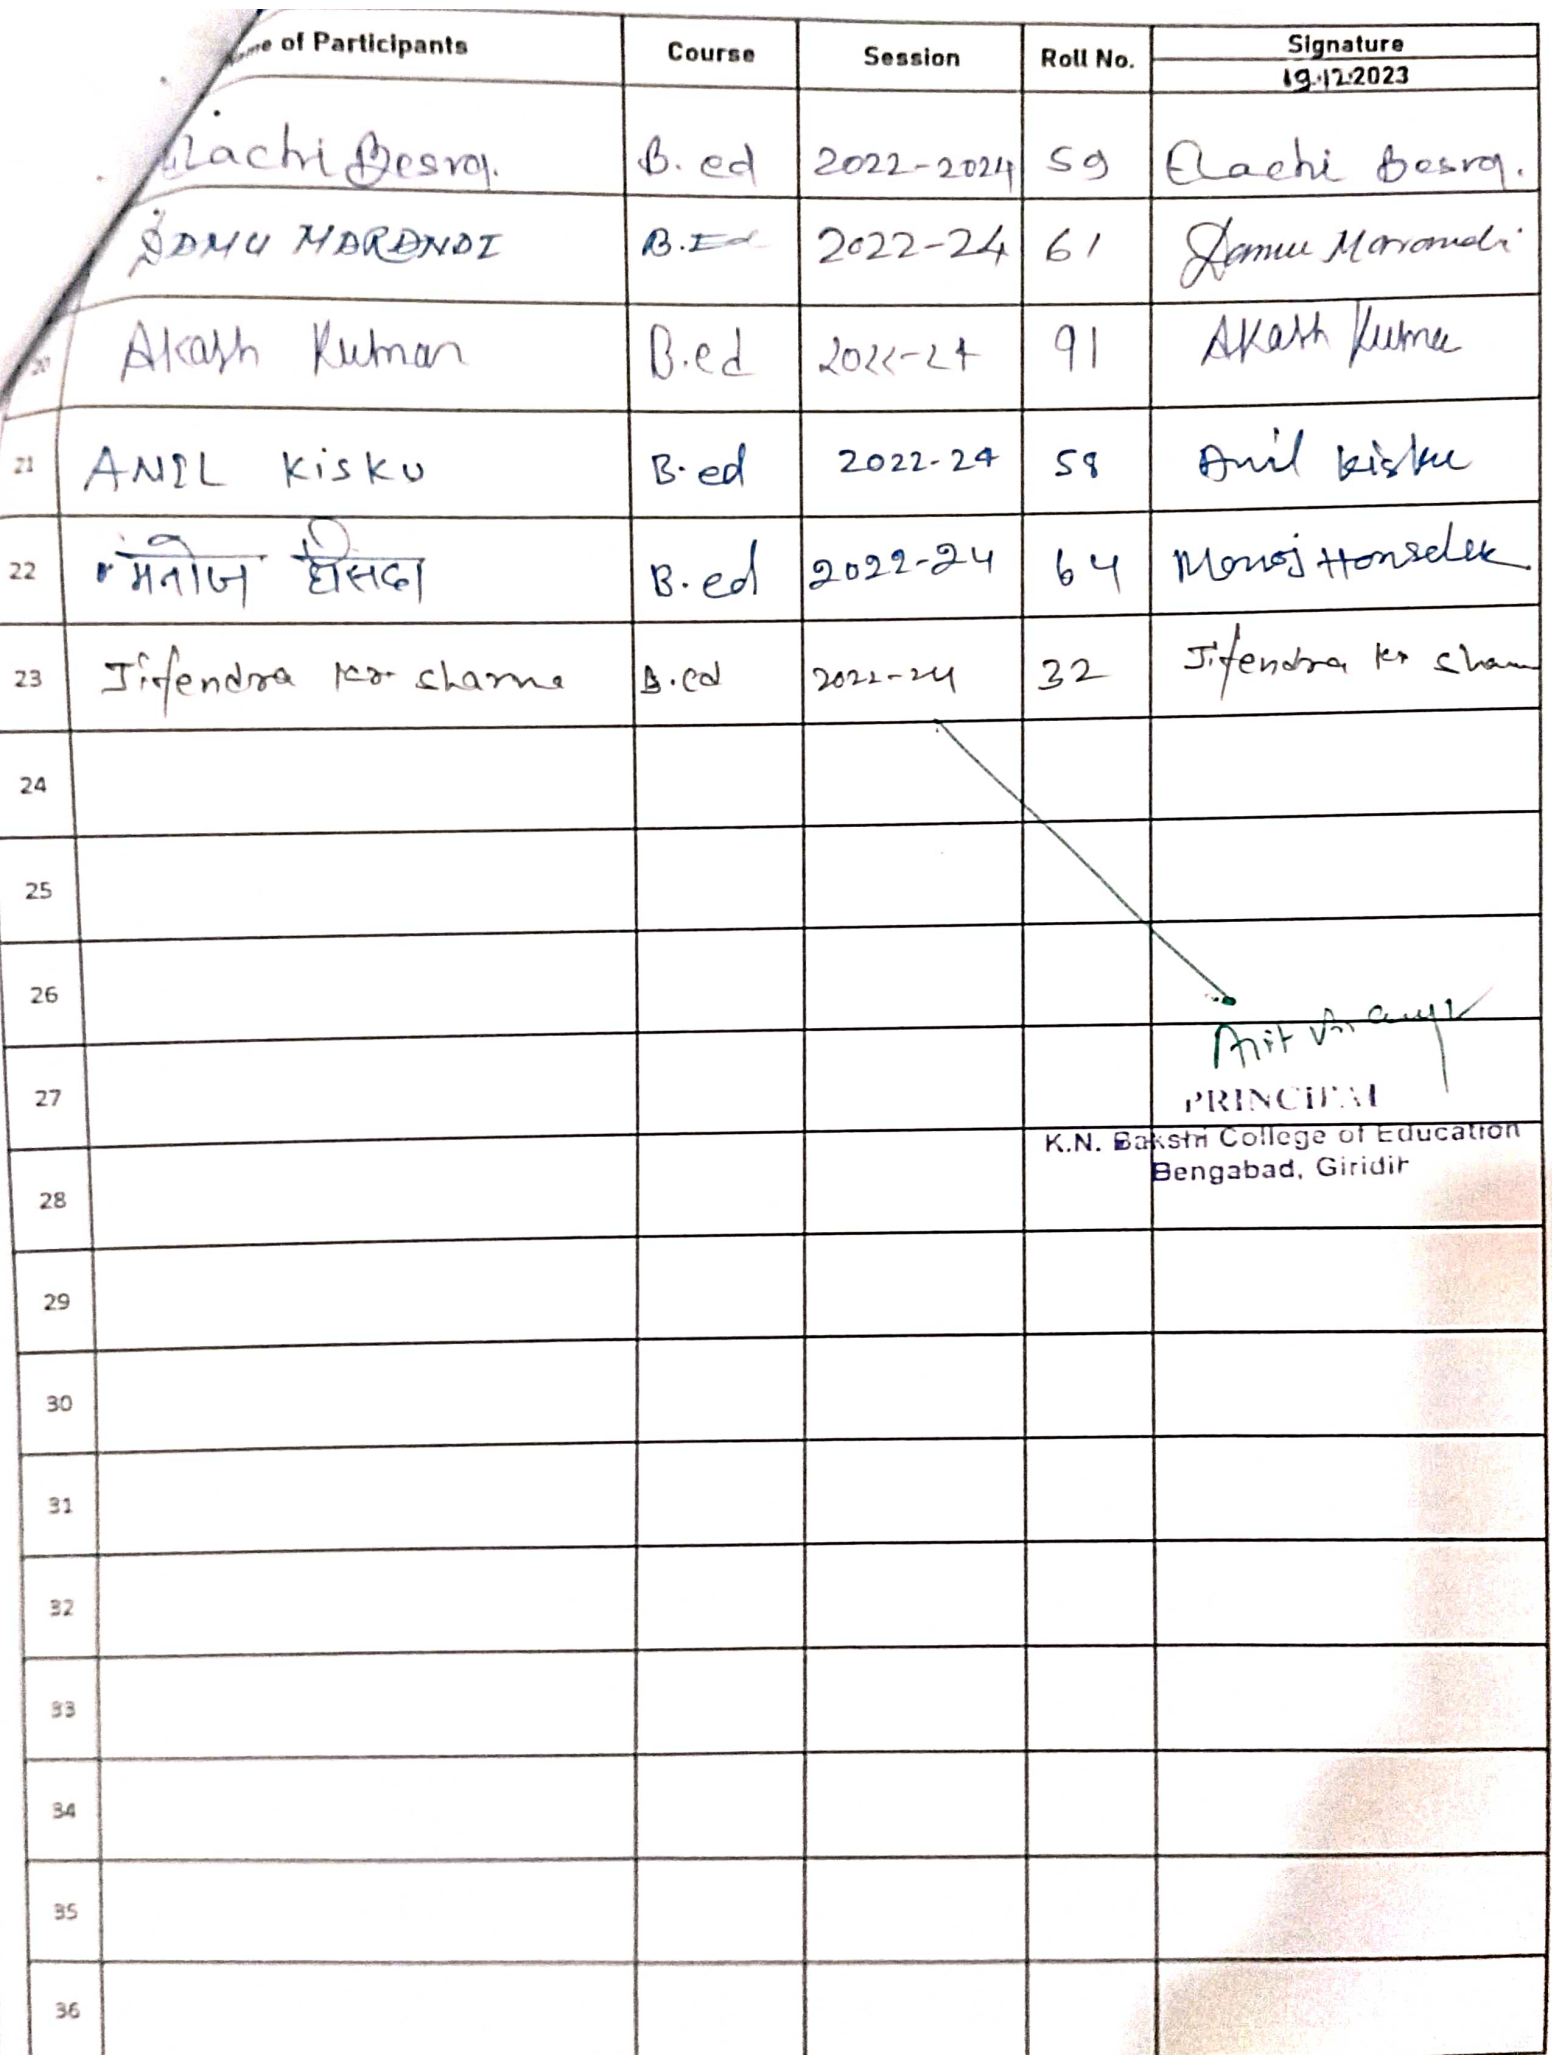 of Participants Course Session Roll No. Signature
19.12.2023
Elachi Besra. B.ed 2022-2024 59 Elachi Besra.
DAMU MARANDI B.Ed 2022-24 61 Damu Marandi
20 Akash Kumar B.ed 2022-24 91 Akash Kumar
21 ANIL KISKU B.ed 2022-24 58 Anil Kisku
22 मनोज B.ed 2022-24 64 Manoj
23 Jitendra Kr. Sharma B.ed 2022-24 32 Jitendra Kr Sharm
24
25
26
27
PRINCIPAL
K.N. Bakshi College of Education
Bengabad, Giridih
28
29
30
31
32
33
34
35
36